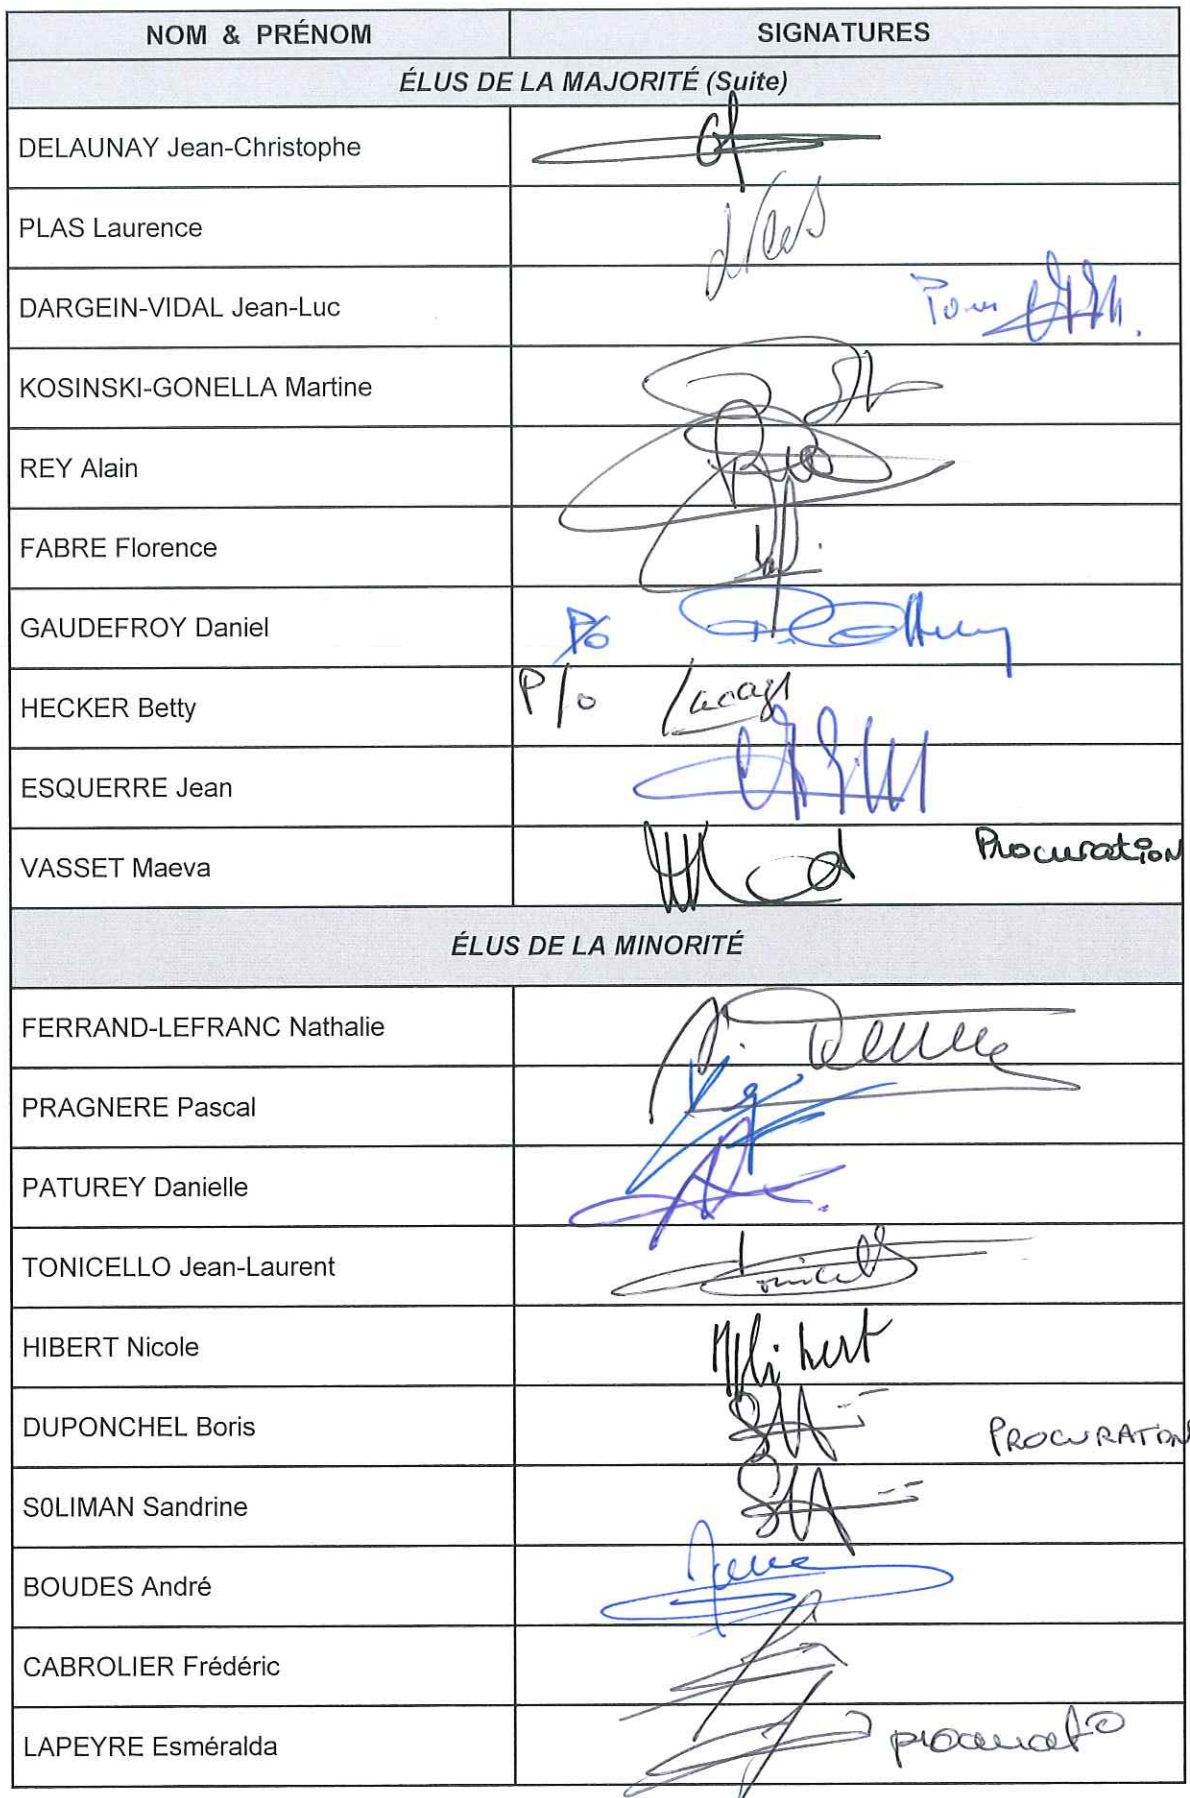 NOM & PRÉNOM SIGNATURES
ÉLUS DE LA MAJORITÉ (Suite)
DELAUNAY Jean-Christophe
PLAS Laurence
DARGEIN-VIDAL Jean-Luc Pour
KOSINSKI-GONELLA Martine
REY Alain
FABRE Florence
GAUDEFROY Daniel P/o
HECKER Betty P/o
ESQUERRE Jean
VASSET Maeva Procuration
ÉLUS DE LA MINORITÉ
FERRAND-LEFRANC Nathalie
PRAGNERE Pascal
PATUREY Danielle
TONICELLO Jean-Laurent
HIBERT Nicole
DUPONCHEL Boris PROCURATION
S0LIMAN Sandrine
BOUDES André
CABROLIER Frédéric
LAPEYRE Esméralda